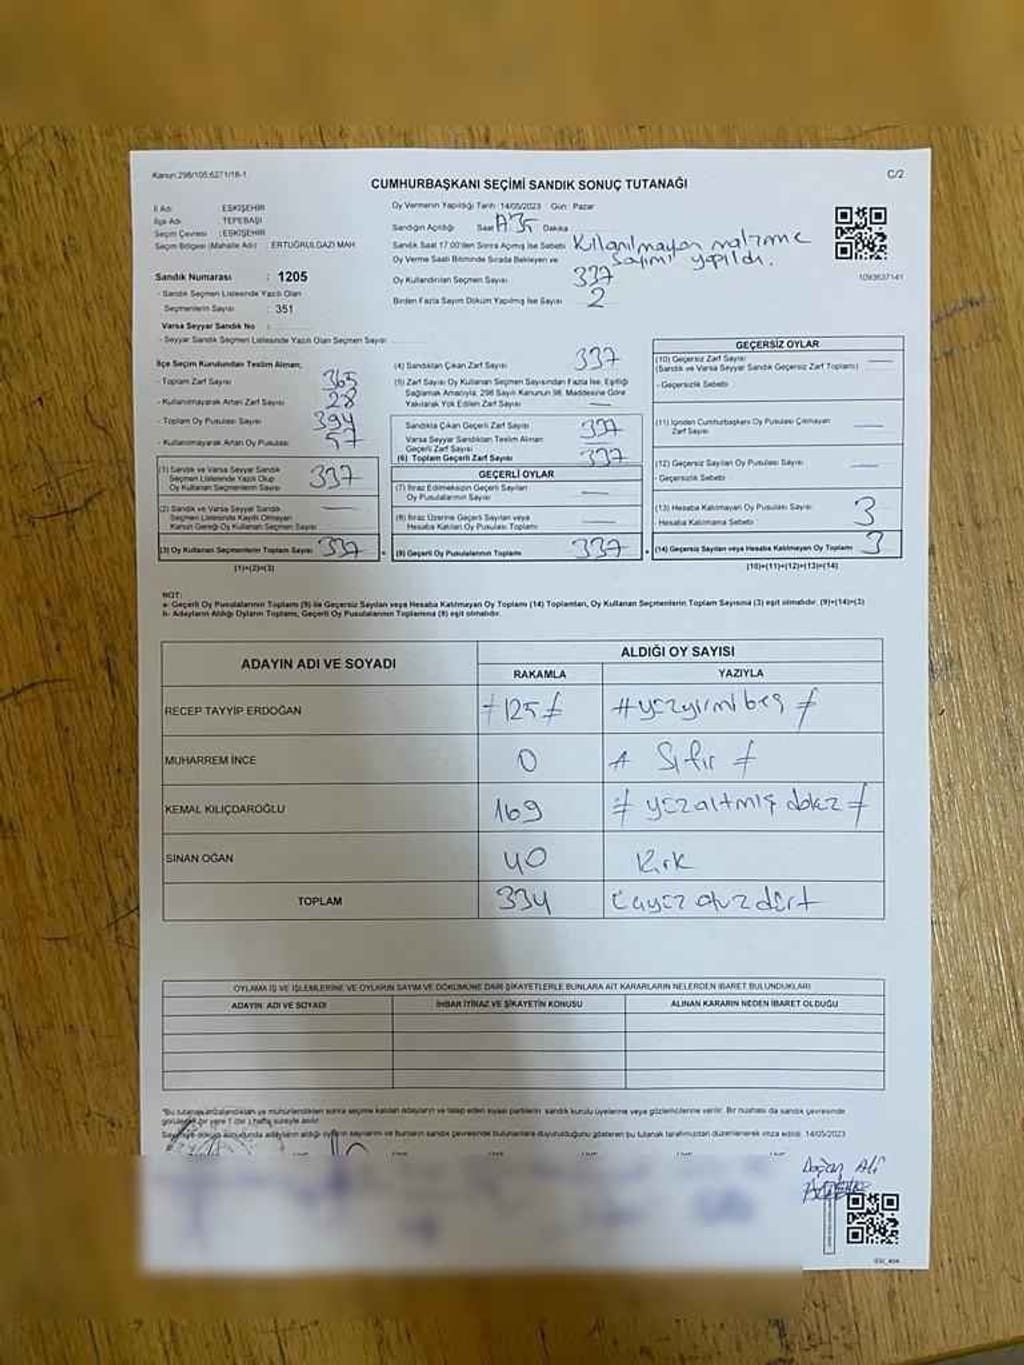 Kanun:298/105;6271/18-1
C/2
CUMHURBAŞKANI SEÇİMİ SANDIK SONUÇ TUTANAĞI
İl Adı : ESKİŞEHİR
İlçe Adı : TEPEBAŞI
Seçim Çevresi : ESKİŞEHİR
Seçim Bölgesi (Mahalle Adı) : ERTUĞRULGAZİ MAH.
Sandık Numarası : 1205
- Sandık Seçmen Listesinde Yazılı Olan
Seçmenlerin Sayısı : 351
Varsa Seyyar Sandık No :
- Seyyar Sandık Seçmen Listesinde Yazılı Olan Seçmen Sayısı
Oy Vermenin Yapıldığı Tarih : 14/05/2023 Gün : Pazar
Sandığın Açıldığı Saat Dakika
Sandık Saat 17:00'den Sonra Açılmış İse Sebebi Kıllanılmayan malzeme
Oy Verme Saati Bitiminde Sırada Bekleyen ve sayımı yapıldı.
Oy Kullandırılan Seçmen Sayısı 337
Birden Fazla Sayım Döküm Yapılmış İse Sayısı 2
1093637141
İlçe Seçim Kurulundan Teslim Alınan;
- Toplam Zarf Sayısı 365
- Kullanılmayarak Artan Zarf Sayısı 28
- Toplam Oy Pusulası Sayısı 394
- Kullanılmayarak Artan Oy Pusulası 57
(1) Sandık ve Varsa Seyyar Sandık
Seçmen Listesinde Yazılı Olup
Oy Kullanan Seçmenlerin Sayısı 337
(2) Sandık ve Varsa Seyyar Sandık
Seçmen Listesinde Kayıtlı Olmayan
Kanun Gereği Oy Kullanan Seçmen Sayısı —
(3) Oy Kullanan Seçmenlerin Toplam Sayısı 337
(1)+(2)=(3)
(4) Sandıktan Çıkan Zarf Sayısı 337
(5) Zarf Sayısı Oy Kullanan Seçmen Sayısından Fazla İse, Eşitliği
Sağlamak Amacıyla, 298 Sayılı Kanunun 98. Maddesine Göre
Yakılarak Yok Edilen Zarf Sayısı —
Sandıkta Çıkan Geçerli Zarf Sayısı 337
Varsa Seyyar Sandıktan Teslim Alınan
Geçerli Zarf Sayısı
(6) Toplam Geçerli Zarf Sayısı 337
GEÇERLİ OYLAR
(7) İtiraz Edilmeksizin Geçerli Sayılan
Oy Pusulalarının Sayısı —
(8) İtiraz Üzerine Geçerli Sayılan veya
Hesaba Katılan Oy Pusulası Toplamı —
(9) Geçerli Oy Pusulalarının Toplamı 337
GEÇERSİZ OYLAR
(10) Geçersiz Zarf Sayısı —
(Sandık ve Varsa Seyyar Sandık Geçersiz Zarf Toplamı)
- Geçersizlik Sebebi
(11) İçinden Cumhurbaşkanı Oy Pusulası Çıkmayan
Zarf Sayısı —
(12) Geçersiz Sayılan Oy Pusulası Sayısı —
- Geçersizlik Sebebi
(13) Hesaba Katılmayan Oy Pusulası Sayısı 3
- Hesaba Katılmama Sebebi
(14) Geçersiz Sayılan veya Hesaba Katılmayan Oy Toplamı 3
(10)+(11)+(12)+(13)=(14)
NOT:
a- Geçerli Oy Pusulalarının Toplamı (9) ile Geçersiz Sayılan veya Hesaba Katılmayan Oy Toplamı (14) Toplamları, Oy Kullanan Seçmenlerin Toplam Sayısına (3) eşit olmalıdır. (9)+(14)=(3)
b- Adayların Aldığı Oyların Toplamı, Geçerli Oy Pusulalarının Toplamına (9) eşit olmalıdır.
ADAYIN ADI VE SOYADI ALDIĞI OY SAYISI
RAKAMLA YAZIYLA
RECEP TAYYİP ERDOĞAN ≠125≠ #yüzyirmibeş≠
MUHARREM İNCE 0 Sıfır ≠
KEMAL KILIÇDAROĞLU 169 ≠yüzaltmış dokuz≠
SİNAN OĞAN 40 Kırk
TOPLAM 334 üçyüz otuz dört
OYLAMA İŞ VE İŞLEMLERİNE VE OYLARIN SAYIM VE DÖKÜMÜNE DAİR ŞİKAYETLERLE BUNLARA AİT KARARLARIN NELERDEN İBARET BULUNDUKLARI
ADAYIN ADI VE SOYADI İHBAR İTİRAZ VE ŞİKAYETİN KONUSU ALINAN KARARIN NEDEN İBARET OLDUĞU
*Bu tutanak imzalandıktan ve mühürlendikten sonra seçime katılan adayların ve talep eden siyasi partilerin sandık kurulu üyelerine veya gözlemcilerine verilir. Bir nüshası da sandık çevresinde
görülecek bir yere 1 (bir) hafta süreyle asılır.
Sayım ve döküm sonucunda adayların aldığı oyların sayılarını ve bunların sandık çevresinde bulunanlara duyurulduğunu gösteren bu tutanak tarafımızdan düzenlenerek imza edildi. 14/05/2023
Doğan Ali